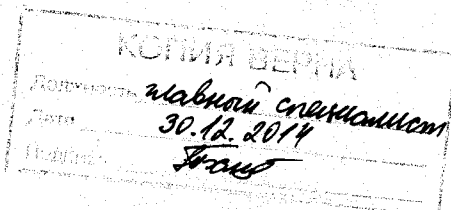 КОПИЯ ВЕРНА
Должность главный специалист
Дата 30.12.2014
Подпись